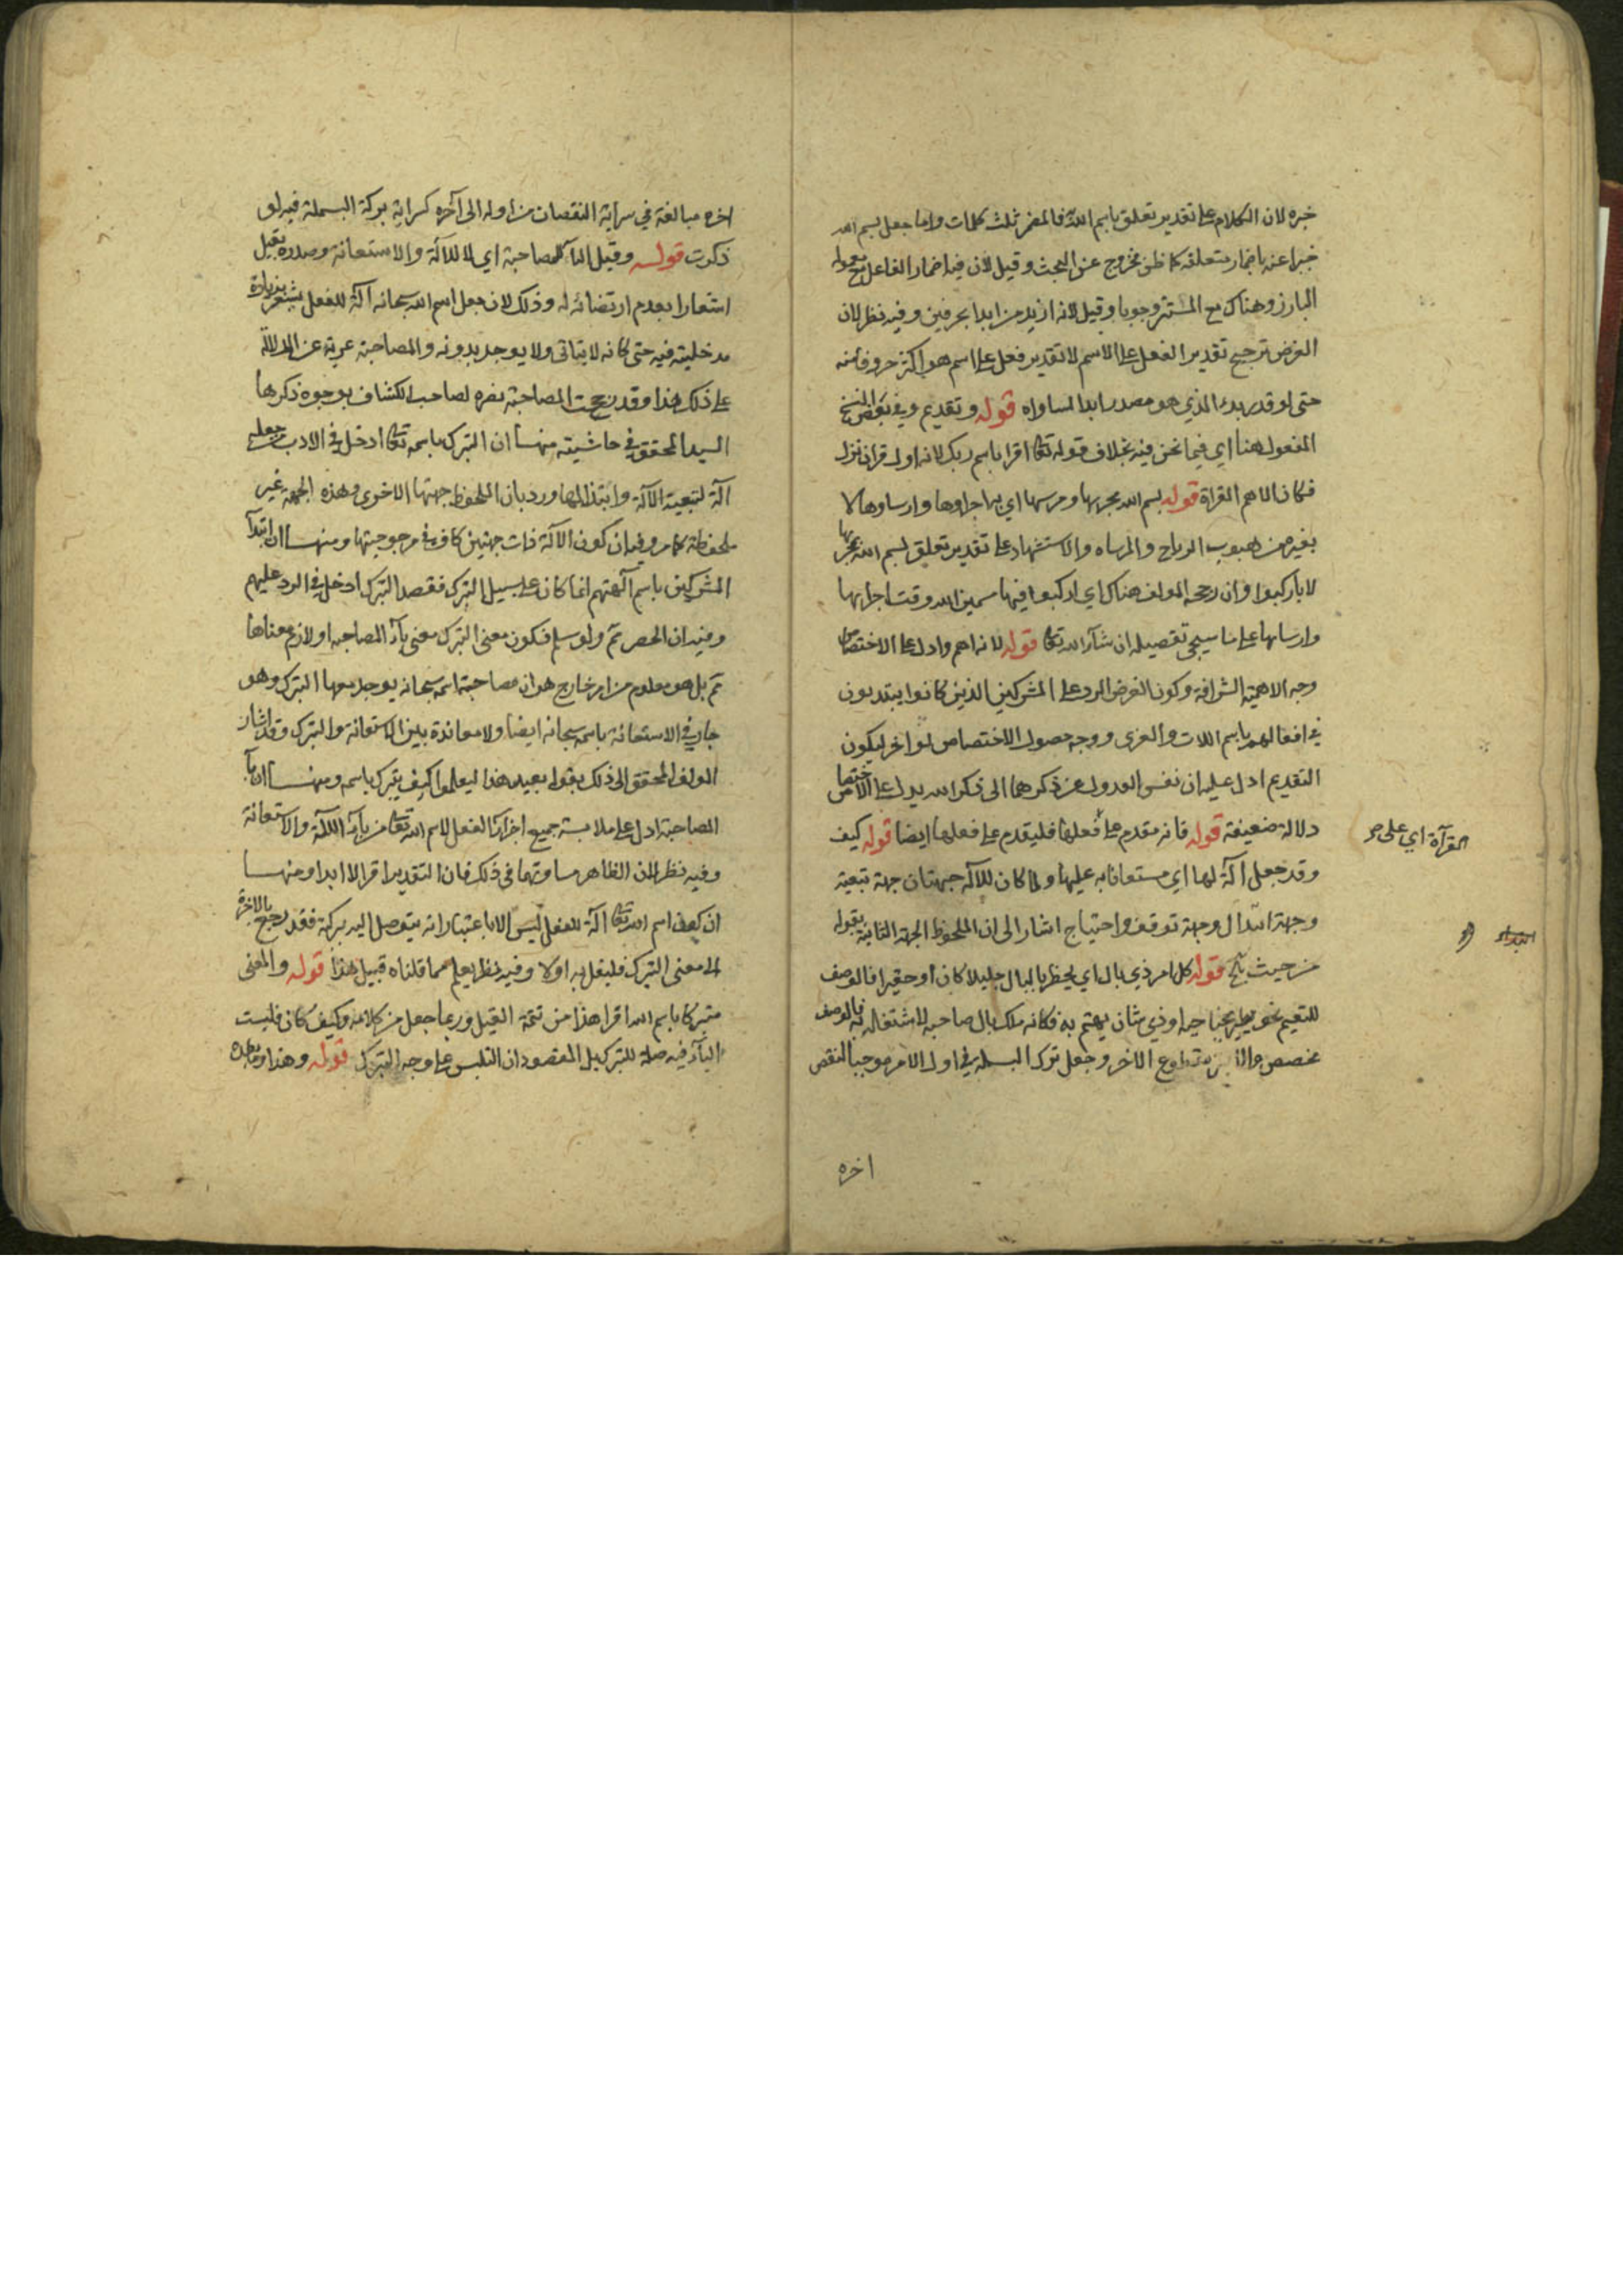 خبره لان الكلام على تقدير تعلق باسم الله فالمضمر ثلث كلمات واما جعل بسم الله
خبرا عنه باضمار متعلقه كما ظن فخروج عن البحث وقيل لان فيه اضمار الفاعل مع معموله
البارز وهناك مع المستتر وجوبا وقيل لانه ازيد من ابدا بحرفين وفيه نظر لان
الغرض ترجيح تقدير الفعل على الاسم لا تقدير فعل على اسم هو اكثر حروفا منه
حتى لو قدر بدء الذي هو مصدر ابدا لساواه قوله وتقديم وفي بعض النسخ
المفعول هنا اي فيما نحن فيه بخلاف قوله تعالى اقرا باسم ربك لانه اول قران نزل
فكان الاهم القراة قوله بسم الله مجريها ومرسها اي بها اجراوها وارساوها لا
بغيره من هبوب الرياح والمرساه والاستشهاد على تقدير تعلق بسم الله بمجريها
لا باركبوا وان رجحه المولف هناك اي اركبوا فيها مسمين الله وقت اجرايها
وارسائها على ما سيجي تفصيله ان شآء الله تعالى قوله لانه اهم وادل على الاختصاص
وجه الاهمية الشرافة وكون الغرض الرد على المشركين الذين كانوا يبتدون
في افعالهم باسم اللات والعزى ووجه حصول الاختصاص لو اخر ليكون
التقديم ادل عليه ان نفس العدول عن ذكرهما الى ذكر الله يدل على الاختصاص
دلالة ضعيفة قوله فانه مقدم على فعلها فليقدم على فعلها ايضا قوله كيف
وقد جعل آلة لها اي مستعانا به عليها ولما كان للآلة جهتان جهة تبعية
وجهة ابتذال وجهة توقف واحتياج اشار الى ان الملحوظ الجهة الثانية بقوله
من حيث الخ قوله كل امر ذي بال اي يخطر بالبال جليلا كان او حقيرا فالوصف
للتعميم نحو يطير بجناحيه او ذي شان يهتم به فكانه ملك بال صاحبه لاشتغاله به فالوصف
مخصص والابتر مقطوع الاخر وجعل ترك البسملة في اول الامر موجبا لنقص
القرآة اي على
اخره
اخره مبالغة في سراية النقصان من اوله الى آخره كسراية بركة البسملة فيه لو
ذكرت قوله وقيل البآء للمصاحبة اي لا للآلة والاستعانة وصدره بقيل
اشعارا بعدم ارتضائه له وذلك لان جعل اسم الله سبحانه آلة للفعل يشعر بزيادة
مدخليته فيه حتى كانه لا يتاتى ولا يوجد بدونه والمصاحبة عرية عن الدلالة
على ذلك هذا وقد رجحت المصاحبة نصره لصاحب الكشاف بوجوه ذكرها
السيد المحقق في حاشيته منها ان التبرك باسمه تعالى ادخل في الادب من جعله
آلة لتبعية الآلة وابتذالها ورد بان الملحوظ جهتها الاخرى وهذه الجهة غير
ملحوظة كما مر وفيه ان كون الآلة ذات جهتين كاف في مرجوحيتها ومنها ان ابتدآ
المشركين باسم آلهتهم انما كان على سبيل التبرك فقصد التبرك ادخل في الرد عليهم
وفيه ان الحصر ثم ولو سلم فكون معنى التبرك معنى بآء المصاحبة او لازم معناها
ثم بل هو معلوم من امر خارج هو ان مصاحبة اسمه سبحانه يوجد معها التبرك وهو
جار في الاستعانة باسمه سبحانه ايضا ولا معاندة بين الاستعانة والتبرك وقد اشار
المولف المحقق الى ذلك بقوله بعيد هذا ليعلموا كيف يتبرك باسمه ومنها ان بآء
المصاحبة ادل على ملابسة جميع اجزآء الفعل لاسم الله تعالى من بآء الآلة والاستعانة
وفيه نظر لان الظاهر مساوتهما في ذلك فان التقدير اقرا لا ابدا ومنها
ان كون اسم الله تعالى آلة للفعل ليس الا باعتبار انه يتوصل اليه ببركة فقد رجع بالاخرة
الى معنى التبرك فليقل به اولا وفيه نظر يعلم مما قلناه قبيل هذا قوله والمعنى
متبركا باسم الله اقرا هذا من تتمة القيل وربما جعل من كلامه وكيف كان فليست
البآء فيه صلة للتبرك بل المقصود ان التلبس على وجه التبرك قوله وهذا وما بعده